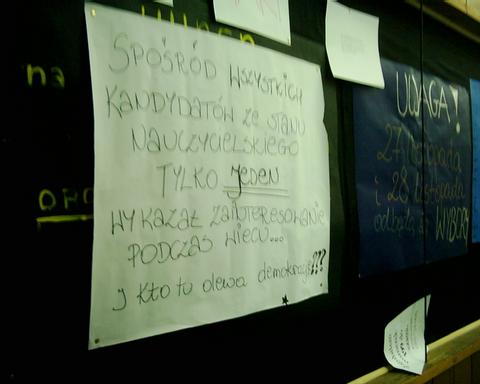 na
OPO
SPOŚRÓD WSZYSTKICH
KANDYDATÓW ZE STANU
NAUCZYCIELSKIEGO
TYLKO JEDEN
WYKAZAŁ ZAINTERESOWANIE
PODCZAS WIECU...
I Kto tu olewa demokrację???
UWAGA!
27 listopada
i 28 listopada
odbędą się WYBORY